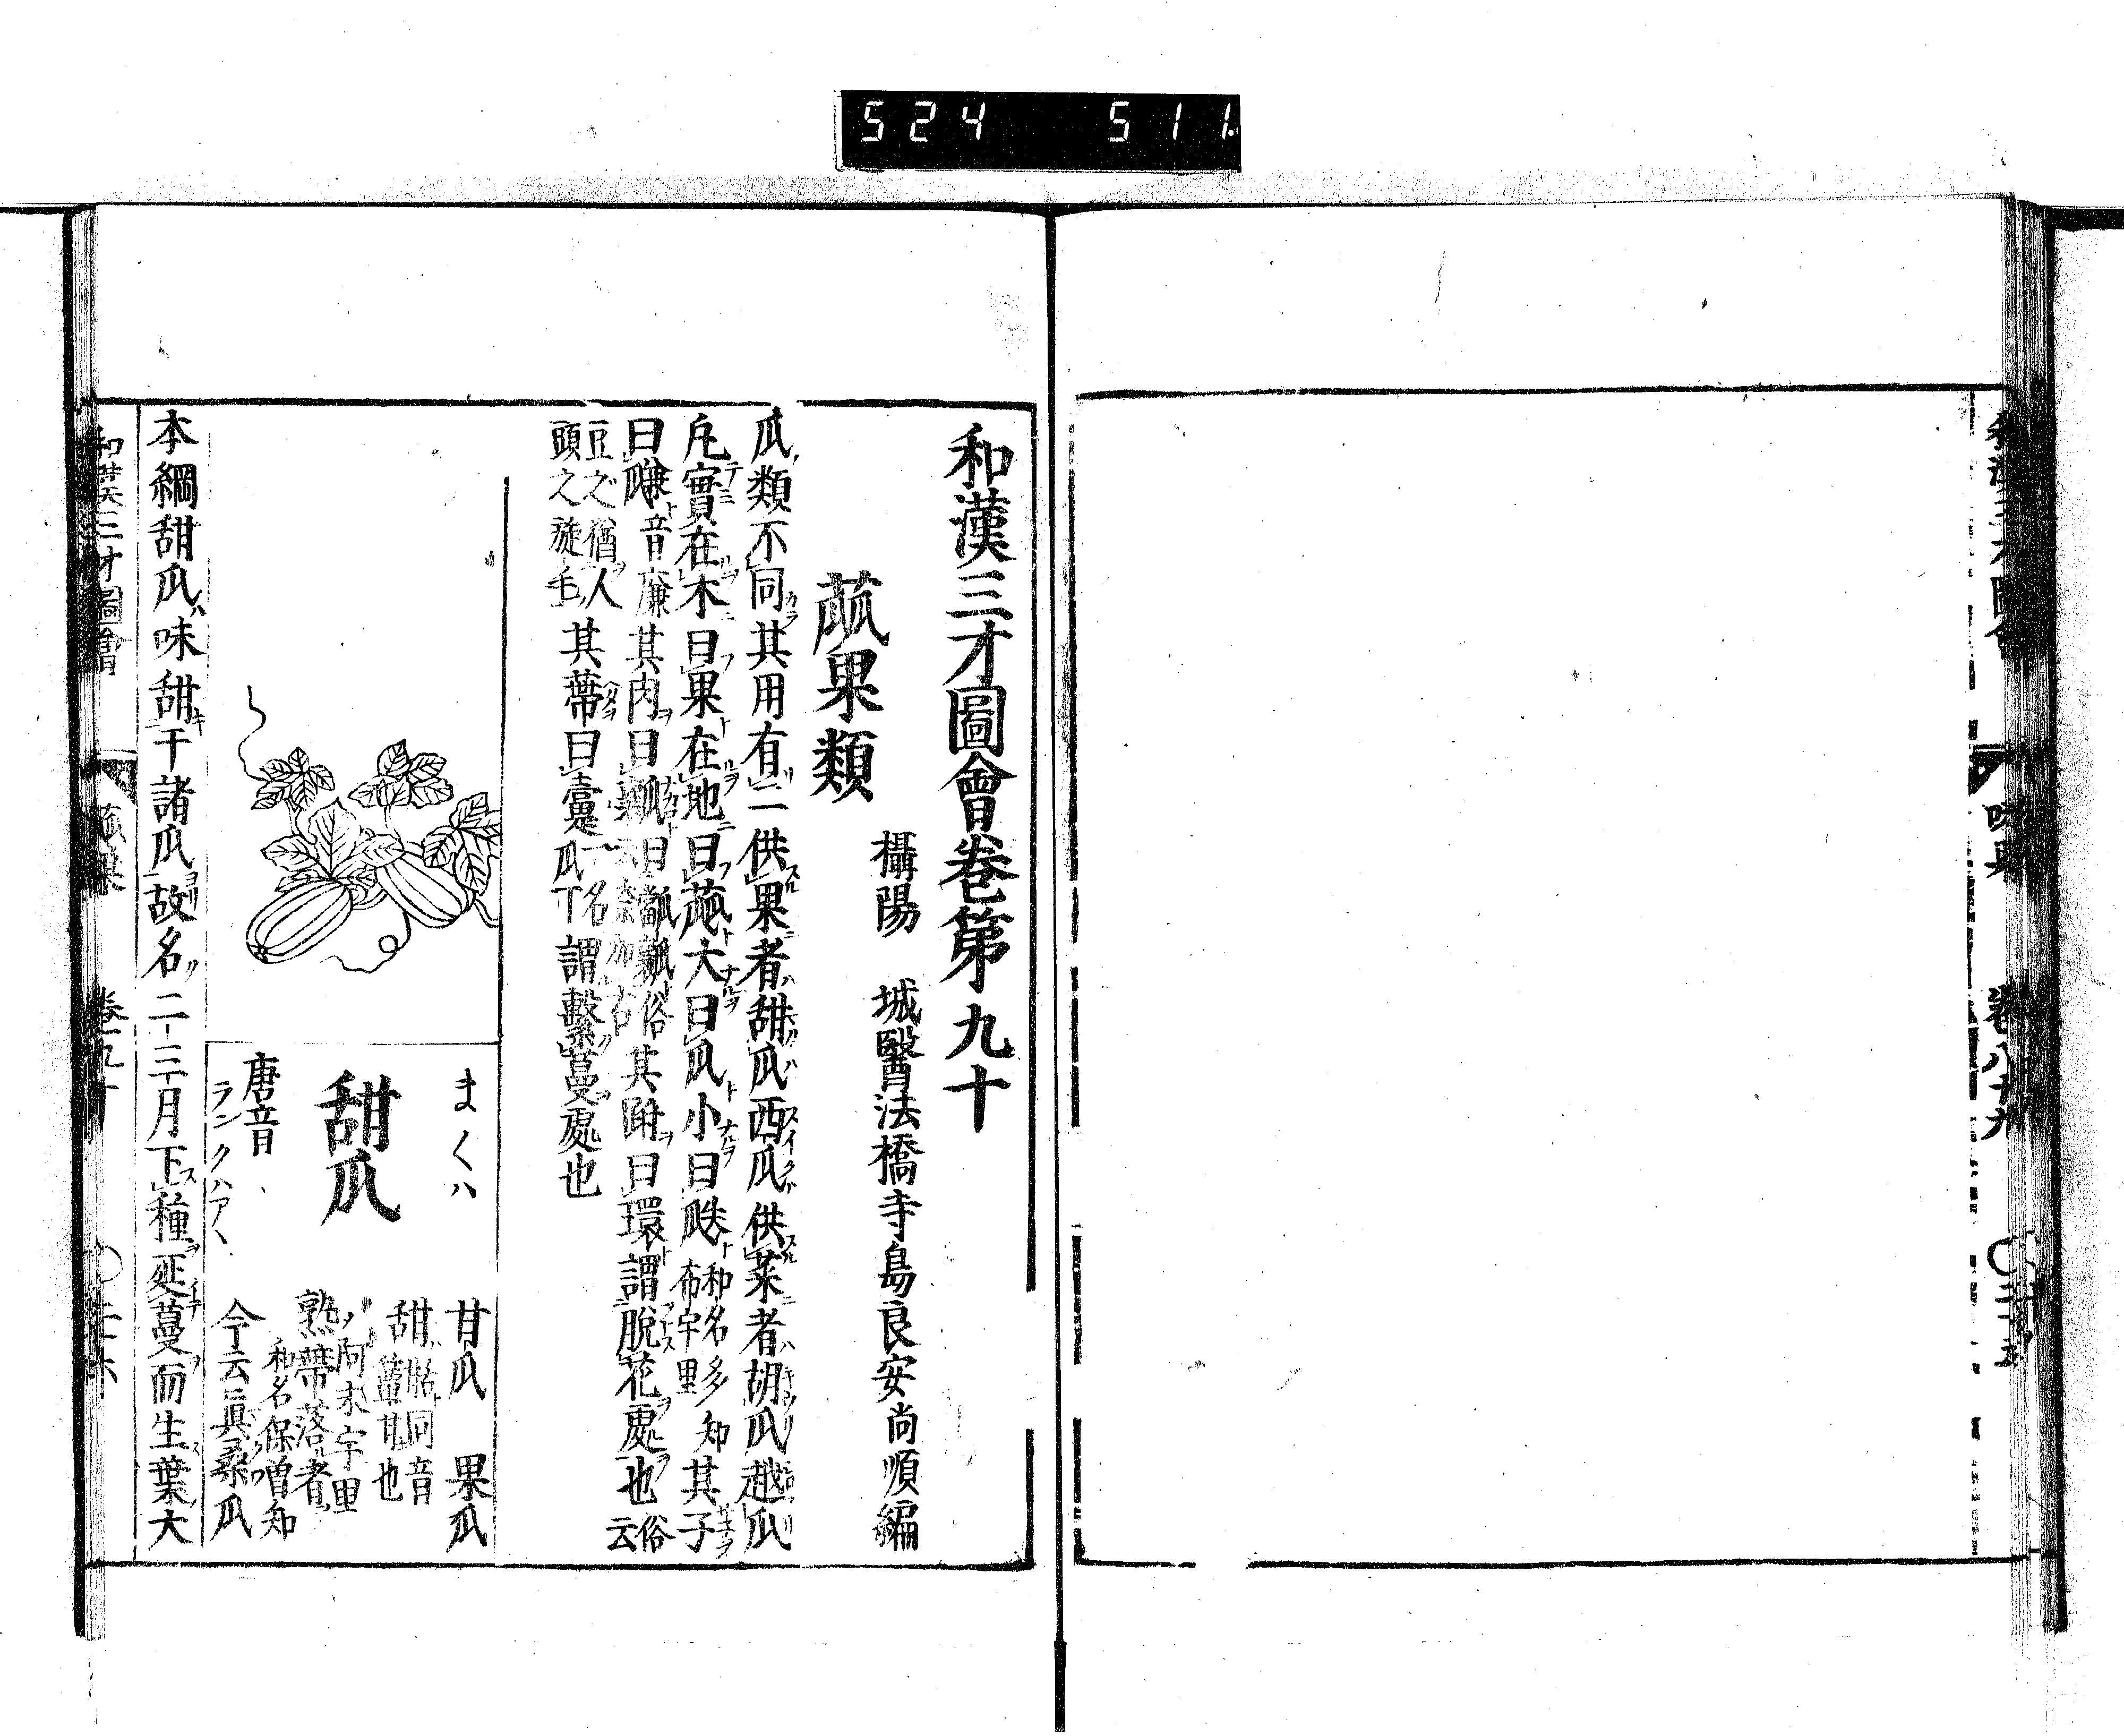 524 511
和漢三才圖會卷第九十
攝陽 城醫法橋寺島良安尚順編
蓏果類
瓜類不同其用有二供果者甜瓜西瓜供菜者胡瓜越瓜
凡實在木曰果在地曰蓏大曰瓜小曰瓞和名多知布宇里其子
曰㼓音廉其肉曰瓤其跗曰環謂脫花處也俗云
豆之猶人頭之旋毛其蔕曰疐一名瓜丁謂繫蔓處也
まくハ
甜瓜
唐音
甘瓜 果瓜
甜同音
阿末宇里
熟蔕落者
和名保曽知
今云眞桑瓜
本綱甜瓜味甜于諸瓜故名二三月下種延蔓而生葉大
和漢三才圖會 蓏果 卷九十
卷八十九